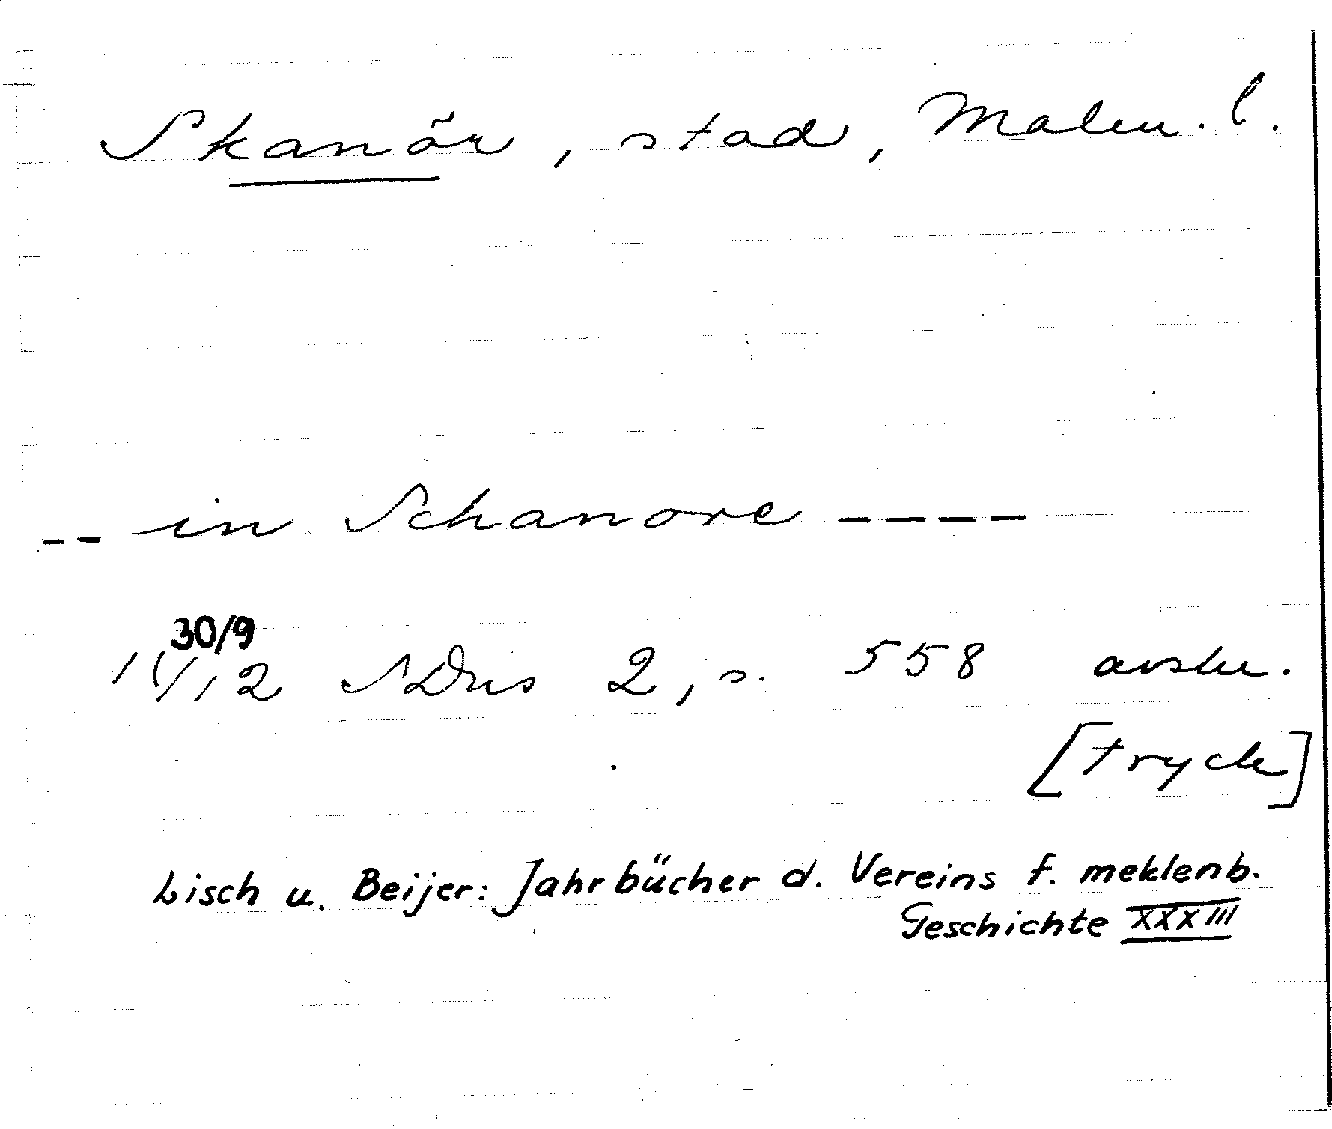 Skanör, stad, Malm. l.
-- in Schanore ----
30/9
1412 SDns 2, s. 558 avskr.
[tryck]
Lisch u. Beijer: Jahrbücher d. Vereins f. meklenb.
Geschichte XXXIII